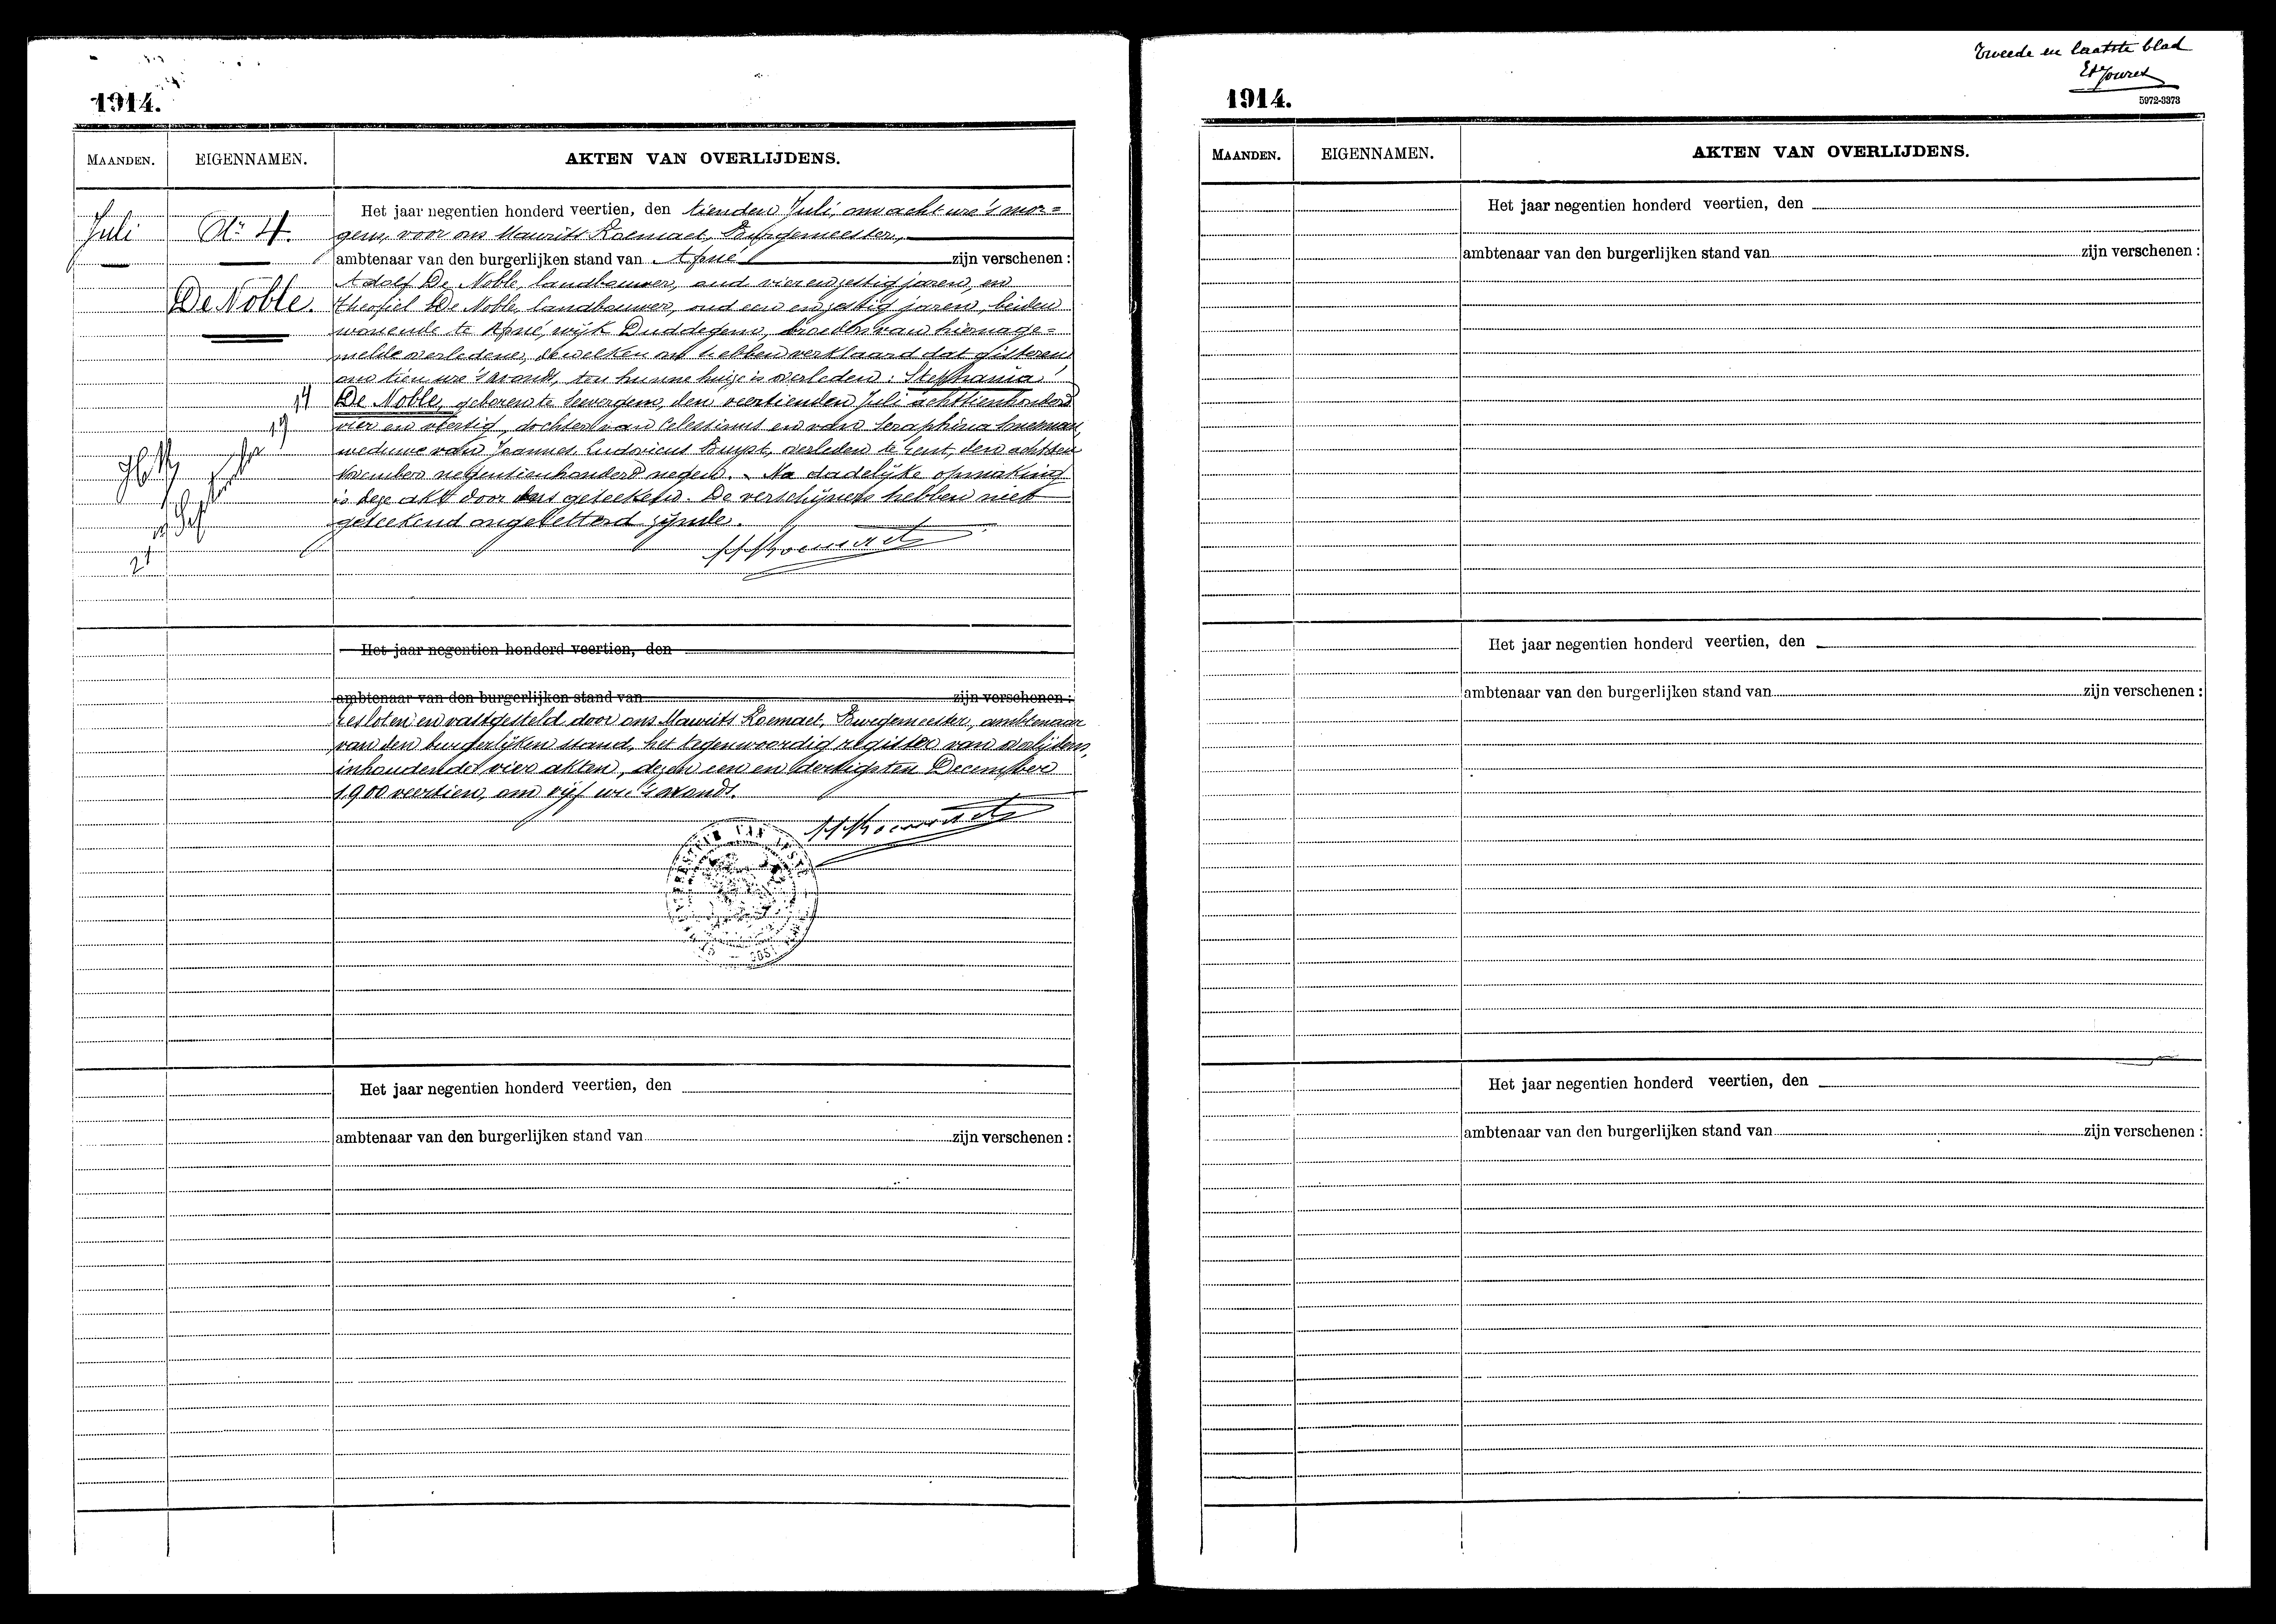 1914.
MAANDEN. EIGENNAMEN. AKTEN VAN OVERLIJDENS.
Juli
Nr 4.
De Noble.
Het jaar negentien honderd veertien, den tienden Juli, om acht ure 's mor=
gens, voor ons Maurits Roemaet, Burgemeester,
ambtenaar van den burgerlijken stand van Afsné zijn verschenen :
Adolf De Noble, landbouwer, oud vier en zestig jaren, en
Theofiel De Noble, landbouwer, oud een en zestig jaren, beiden
wonende te Afsné, wijk Duddegem, broeders van hiernage=
melde overledene, dewelken ons hebben verklaard dat gisteren
om tien ure 's avonds, ten hunne huize is overleden : Stephania
De Noble, geboren te Severgem, den veertienden Juli achttienhonderd
vier en veertig, dochter van Celestinus en van Seraphina
weduwe van Joannes Ludovicus Buyst, overleden te Gent, den achtsten
November negentienhonderd negen. Na dadelijke opmaking
is deze akt door ons geteekend. De verschijners hebben niet
geteekend ongeletterd zijnde.
21 September 1914
Het jaar negentien honderd veertien, den
ambtenaar van den burgerlijken stand van zijn verschenen :
Gesloten en vastgesteld door ons Maurits Roemaet, Burgemeester, ambtenaar
van den burgerlijken stand, het tegenwoordig register van overlijdens,
inhoudende vier akten, dezen een en dertigsten December
1900 veertien, om vijf ure 's avonds.
Het jaar negentien honderd veertien, den
ambtenaar van den burgerlijken stand van zijn verschenen :
Tweede en laatste blad
5972-3373
1914.
MAANDEN. EIGENNAMEN. AKTEN VAN OVERLIJDENS.
Het jaar negentien honderd veertien, den
ambtenaar van den burgerlijken stand van zijn verschenen :
Het jaar negentien honderd veertien, den
ambtenaar van den burgerlijken stand van zijn verschenen :
Het jaar negentien honderd veertien, den
ambtenaar van den burgerlijken stand van zijn verschenen :